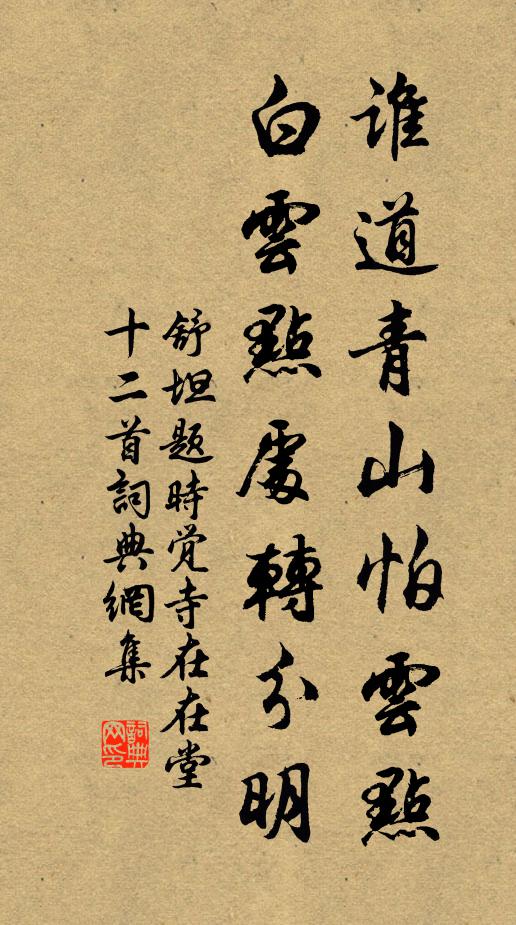 誰道青山怕雲點
白雲點處轉分明
舒坦题時觉寺在在堂
十二首詞典網集
詞典网印